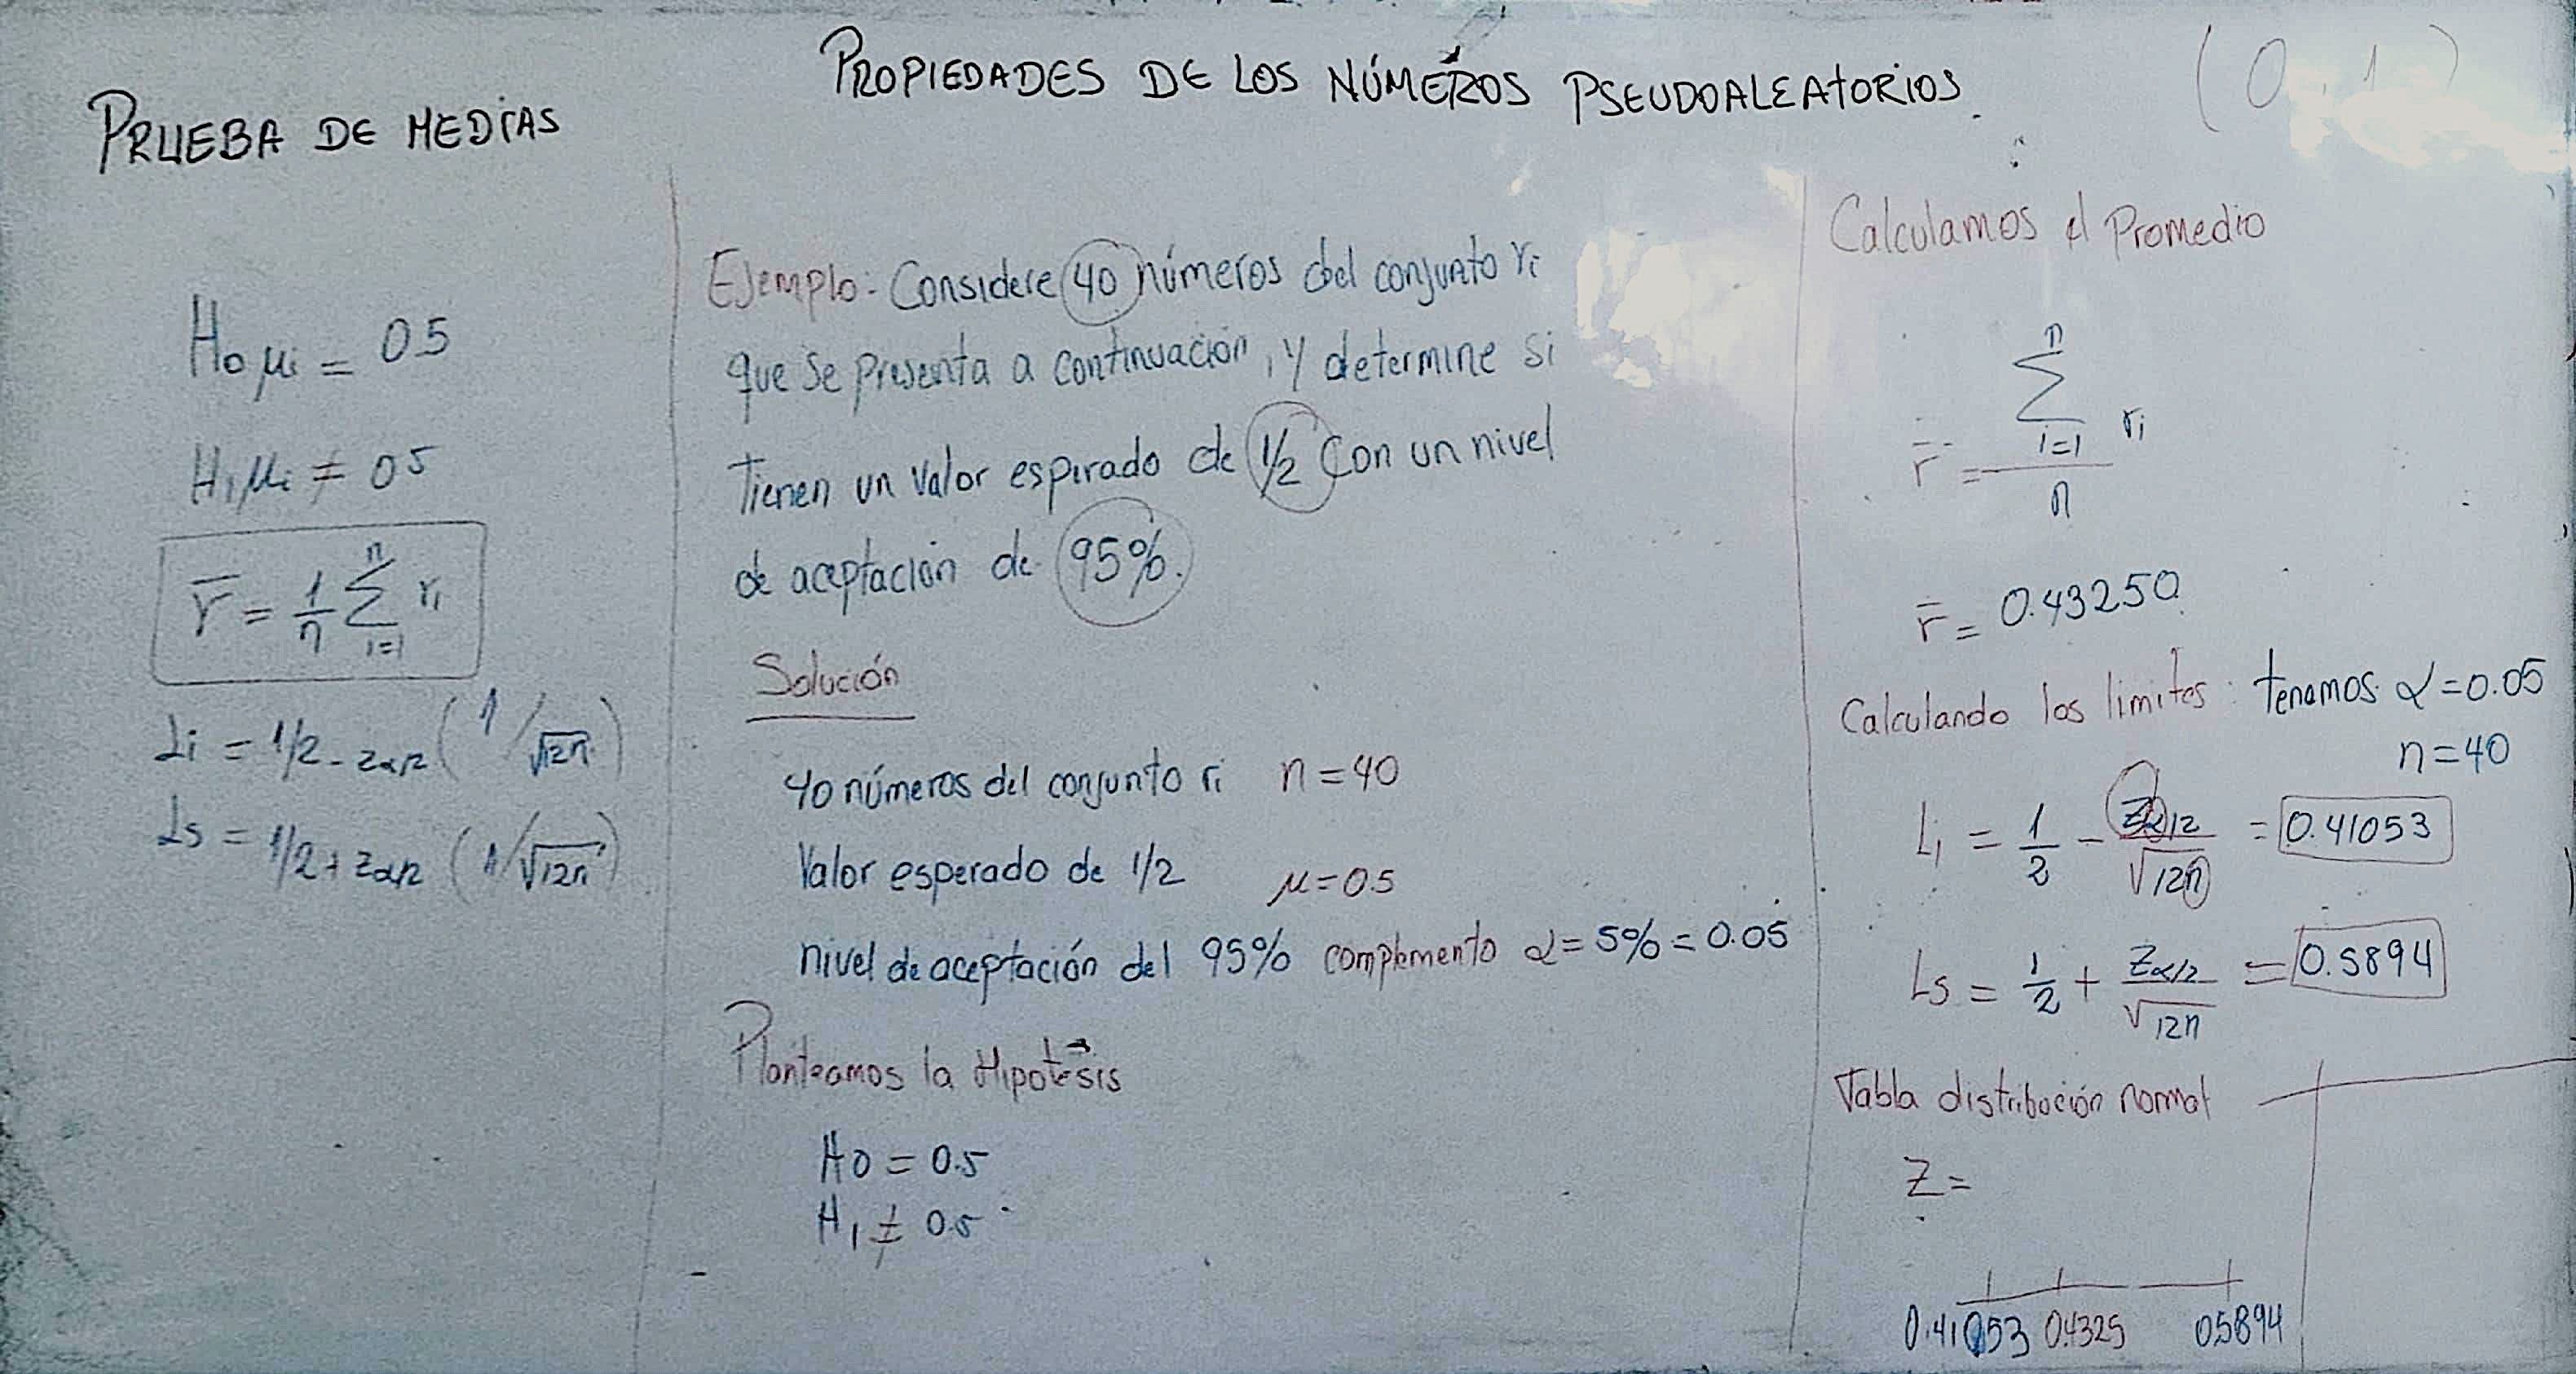 PROPIEDADES DE LOS NÚMEROS PSEUDOALEATORIOS.
(0,1)
PRUEBA DE MEDIAS
H0 μi = 05
H1 μi ≠ 05
r̅ = 1/n Σ i=1 n ri
Li = 1/2 - zα/2 (1/√12n)
Ls = 1/2 + zα/2 (1/√12n)
Ejemplo: Considere 40 números del conjunto ri
que se presenta a continuación, y determine si
tienen un valor esperado de 1/2 con un nivel
de aceptación de 95%.
Solución
40 números del conjunto ri n = 40
Valor esperado de 1/2 μ = 0.5
nivel de aceptación del 95% complemento α = 5% = 0.05
Planteamos la Hipotesis
H0 = 0.5
H1 ≠ 0.5
Calculamos el Promedio
r̅ = Σ i=1 n ri / n
r̅ = 0.43250
Calculando los limites: tenemos α = 0.05
n = 40
Li = 1/2 - Zα/2 / √12n = 0.41053
Ls = 1/2 + Zα/2 / √12n = 0.5894
Tabla distribución normal
Z =
0.41053 0.4325 0.5894